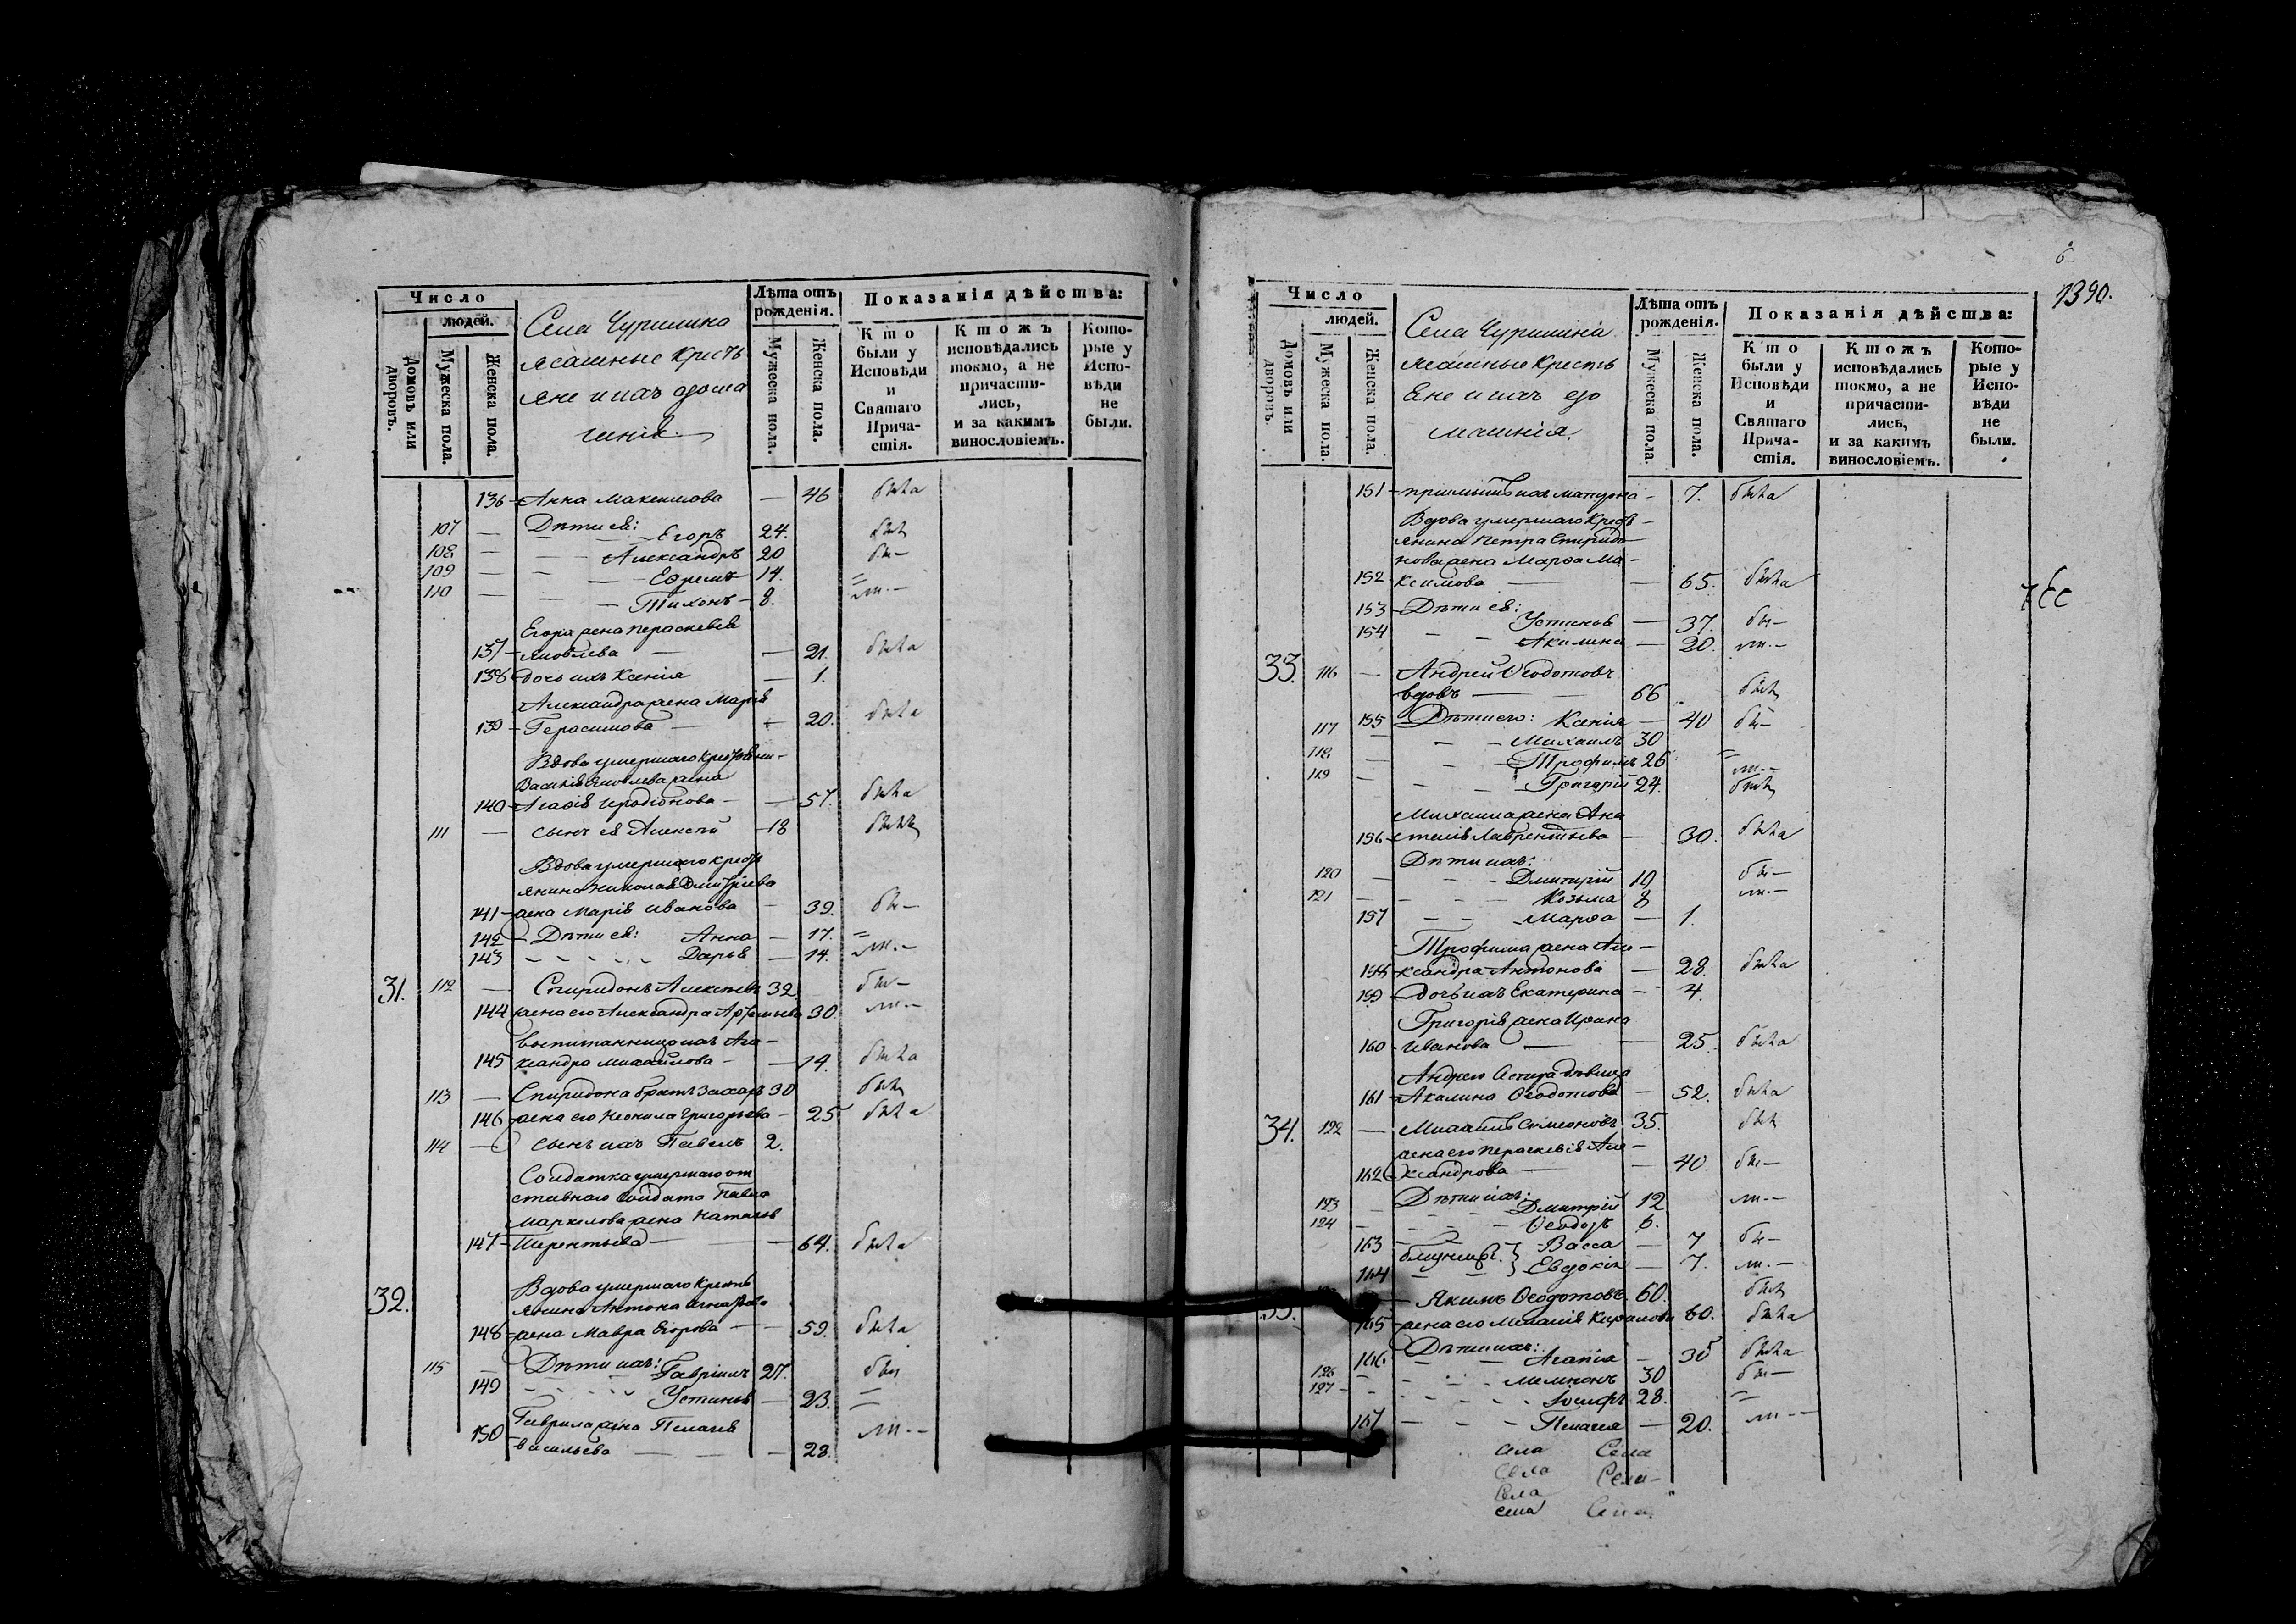 Число
людей.
Домовъ или дворовъ.
Мужеска пола.
Женска пола.
Села Чурилина
ясашные крестъ
яне и ихъ дома
шнія
Лѣта отъ рожденія.
Мужеска пола.
Женска пола.
Показанія дѣйства:
Кто были у Исповѣди и Святаго Причастія.
Ктожъ исповѣдались токмо, а не причастились, и за какимъ винословіемъ.
Которые у Исповѣди не были.
136 Анна Максимова — 46 была
Дѣти ея:
107 — Егоръ 24.
108 — Александръ 20
109 — Ефремъ 14.
110 — Тихонъ 8.
Егора жена Параскевія
137 Яковлева — 21. была
138 дочь ихъ Ксенія — 1.
Александра жена Марія
139 Герасимова — 20. была
Вдова умершаго крестьяни-
Василія Яковлева жена
140 Агафія Иродіонова — 57. была
111 — сынъ ея Алексѣй 18 былъ
Вдова умершаго кресть
янина Николая Дмитріева
141 жена Марія Иванова — 39.
142 Дѣти ея: Анна — 17.
143 Дарья — 14.
31. 112 — Спиридонъ Алексѣевъ 32
144 жена его Александра Артемьева 30.
воспитанница ихъ Але-
145 ксандра Михайлова — 14. была
113 — Спиридона братъ Захаръ 30 былъ
146 жена его Неонила Григорьева — 25 была
114 — сынъ ихъ Павелъ 2.
Солдатка умершаго от
ставнаго солдата Павла
Маркелова жена Наталья
147 Терентьева — 64. была
32. Вдова умершаго кресть
янина Антона
148 жена Мавра Егорова — 59. была
115 — Дѣти ихъ: Гавріилъ 27.
149 Устинья — 23.
Гаврила жена Пелагея
150 Васильева — 28.
6
1390.
Число
людей.
Домовъ или дворовъ.
Мужеска пола.
Женска пола.
Села Чурилина
ясашные кресть
яне и ихъ до
машнія.
Лѣта отъ рожденія.
Мужеска пола.
Женска пола.
Показанія дѣйства:
Кто были у Исповѣди и Святаго Причастія.
Ктожъ исповѣдались токмо, а не причастились, и за какимъ винословіемъ.
Которые у Исповѣди не были.
151 ихъ — 7. была
Вдова умершаго кресть-
янина Петра Спиридо-
нова жена Марѳа Ма-
152 ксимова — 65. была
153 Дѣти ея: Устинья — 37.
154 Акилина — 20.
33. 116 — Андрей Ѳеодотовъ
вдовъ — 66 былъ
155 Дѣти его: Ксенія — 40
117 — Михаилъ 30
118 — Трофимъ 26
119 — Григорій 24. былъ
Михаила жена Ана
156 стасія Лаврентьева — 30. была
Дѣти ихъ:
120 — Дмитрій 10
121 — Козьма 8
157 — Марѳа — 1.
Трофима жена Але-
158 ксандра Антонова — 28. была
159 дочь ихъ Екатерина — 4.
Григорія жена Ирина
160 Иванова — 25. была
Андрея сестра дѣвица
161 Акилина Ѳеодотова — 52. была
34. 122 — Михаилъ Симеоновъ 35. былъ
жена его Параскевія Але-
162 ксандрова — 40.
Дѣти ихъ:
123 — Дмитрій 12
124 — Ѳеодоръ 6.
163 близнецы. } Васса — 7
164 Евдокія — 7.
Якимъ Ѳеодотовъ 60. былъ
165 жена его Меланія 60. была
Дѣти ихъ:
166 Агапія — 35 была
126 — Мемнонъ 30
127 — Іосифъ 28.
167 — Пелагея — 20.
Села Села
Села Села
Села
села Села